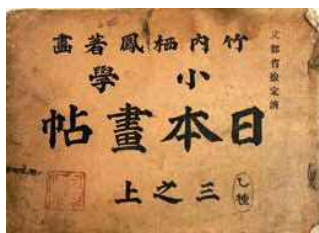 文部省檢定濟
竹内栖鳳著畫
小學
日本畫帖
三之上
乙種